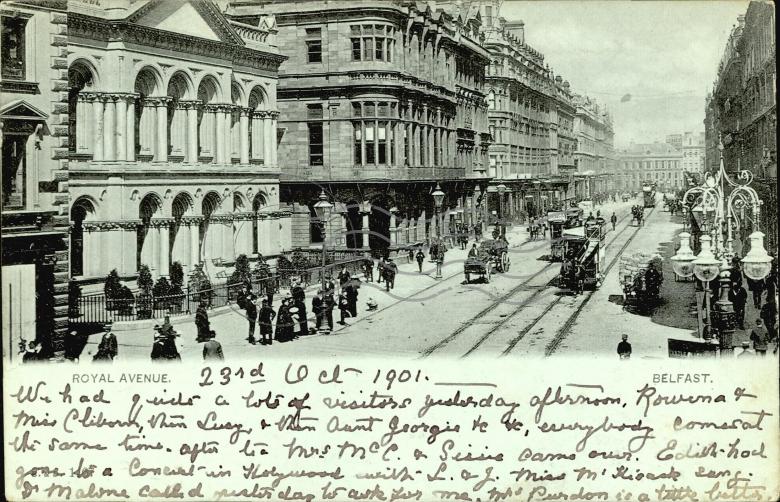 ROYAL AVENUE. 23rd Oct 1901. BELFAST.
We had quite a lot of visitors yesterday afternoon, Rowena &
Miss Cliborn, then Lucy, & then Aunt Georgie &c &c, everybody comes at
the same time. after tea Mrs McC. & Sissie came over. Edith had
gone to a Concert in Holywood with L. & J. Miss McKisack sang.
Dr Malone called yesterday to ask for me. Mrs Purdon is a little better